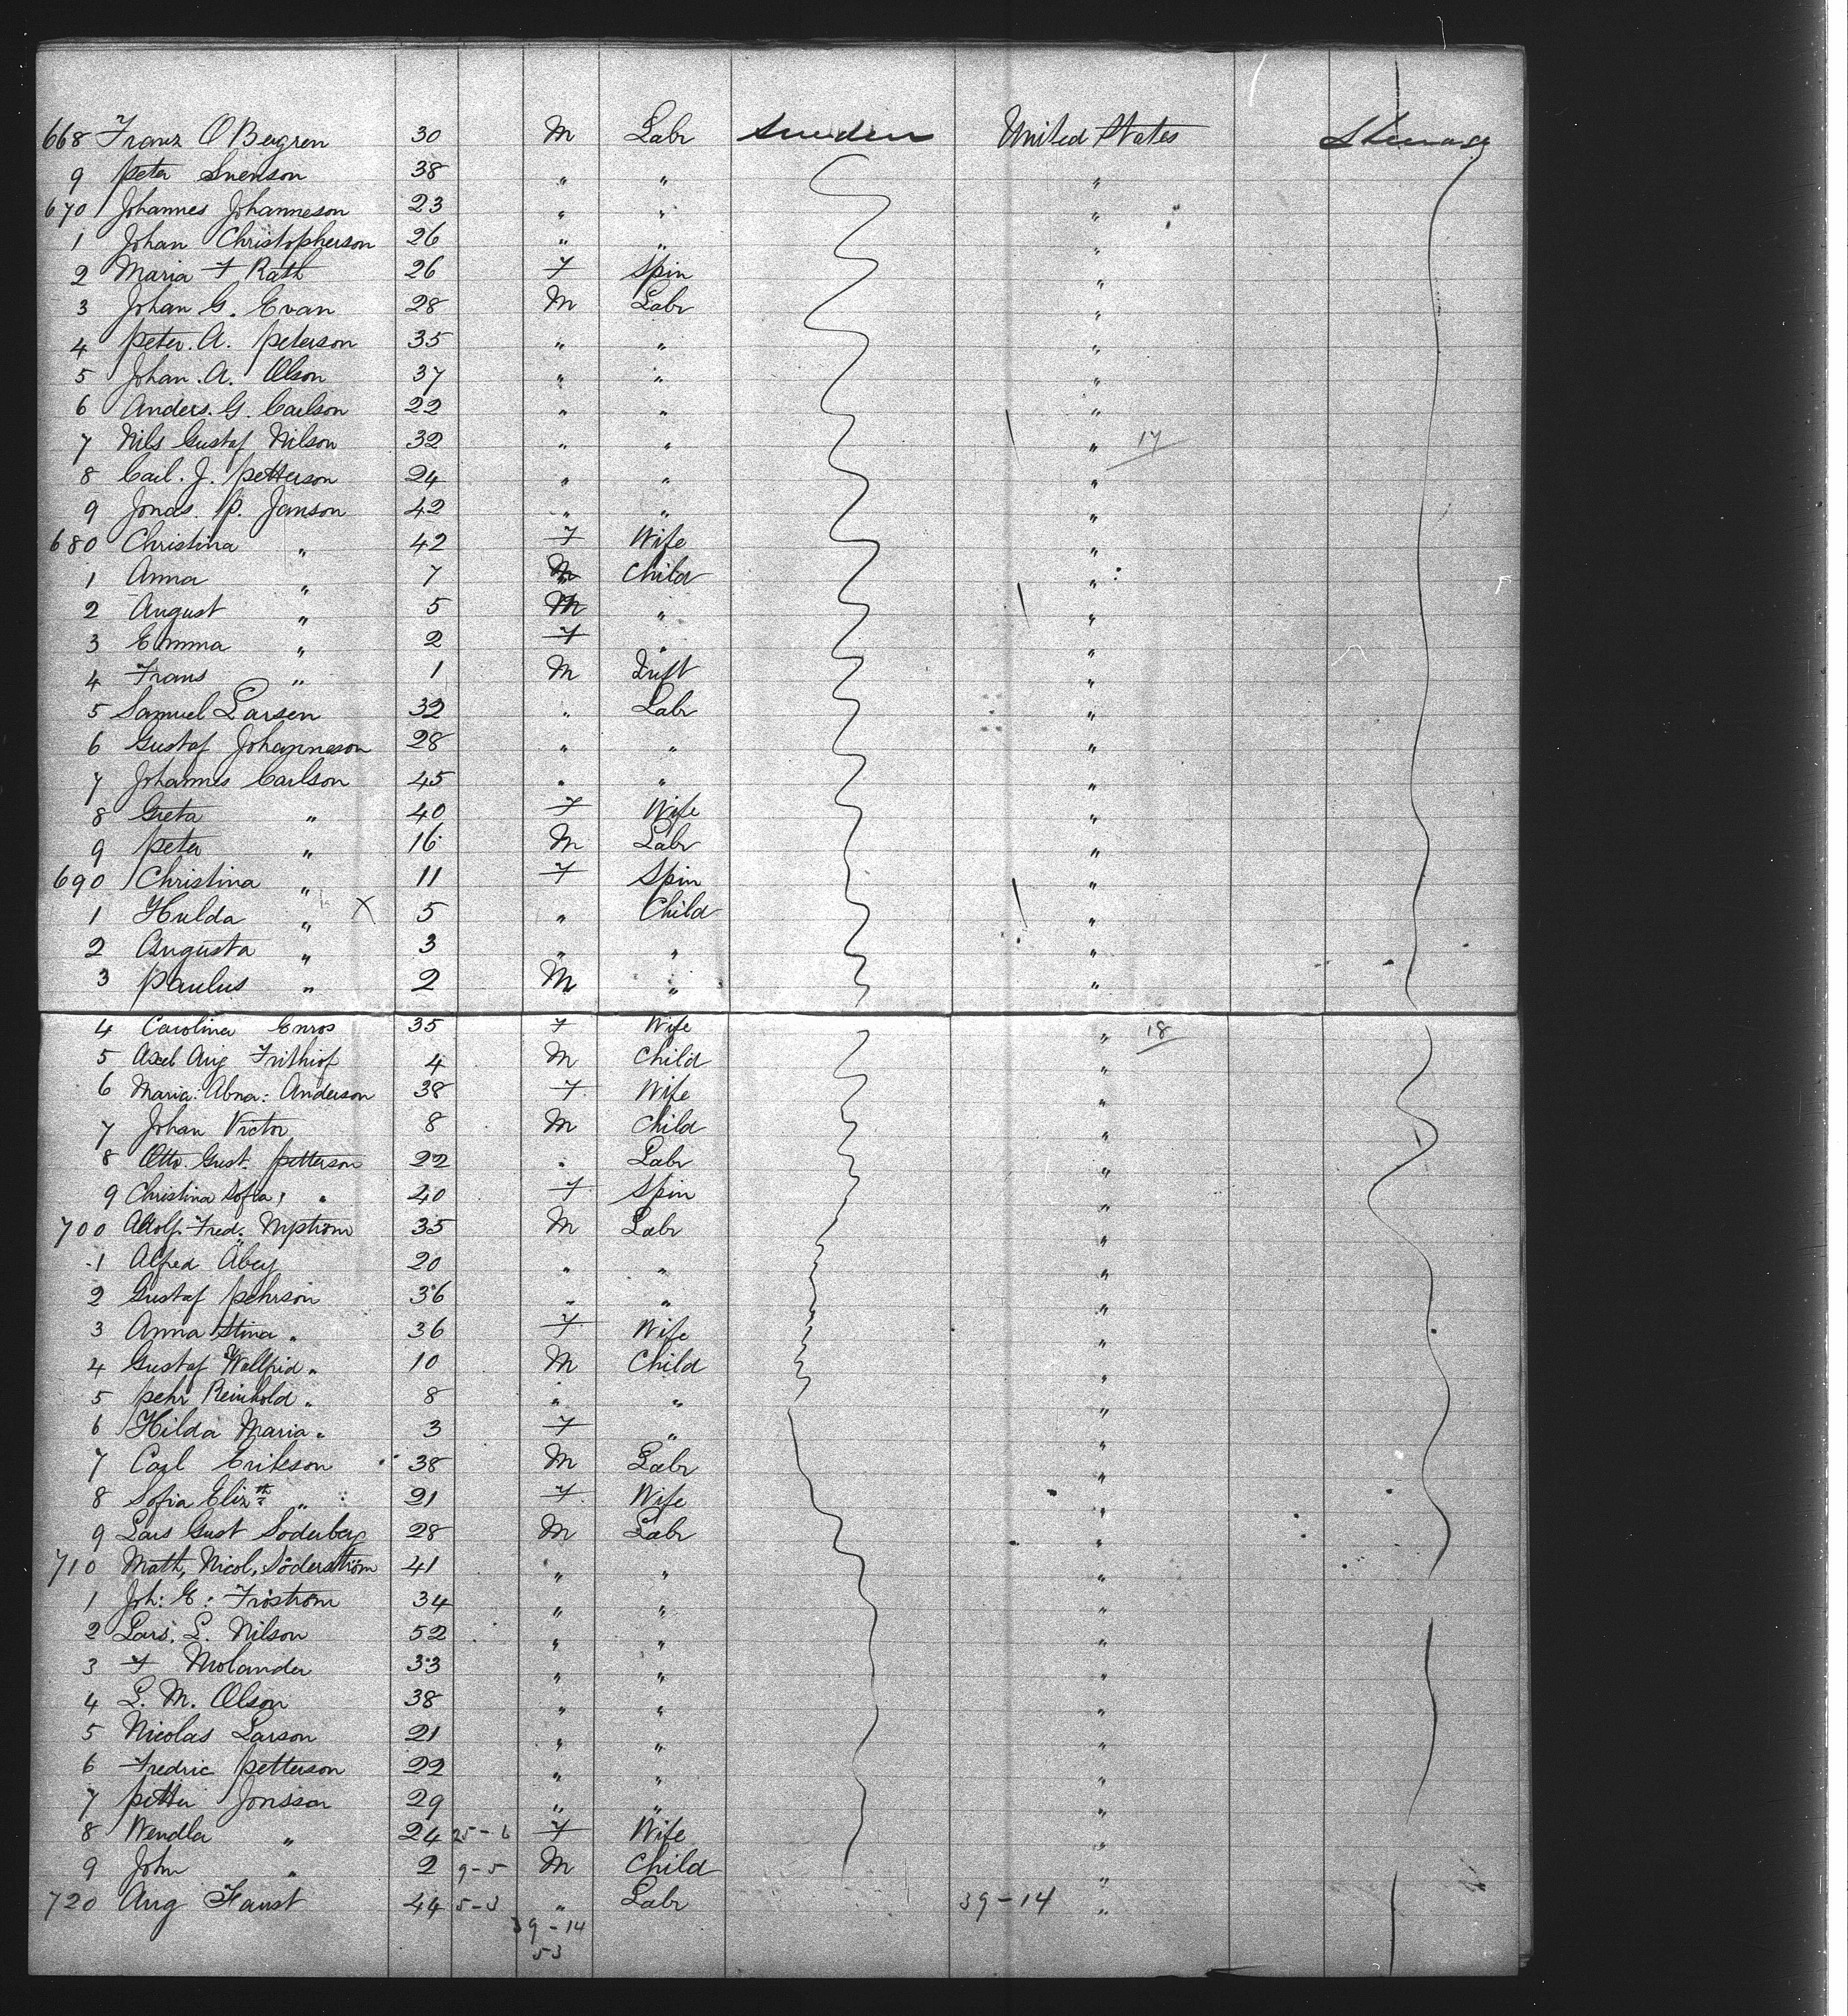 668 Franz O Bergren 30 M Labr Sweden United States Steerage
9 Peter Svenson 38 " " "
670 Johannes Johanneson 23 " " "
1 Johan Christopherson 26 " " "
2 Maria F Rath 26 F Spin "
3 Johan G. Evan 28 M Labr "
4 Peter. A. Peterson 35 " " "
5 Johan. A. Olson 37 " " "
6 Anders. G. Carlson 22 " " "
7 Nils Gustaf Nilson 32 " " " 17
8 Carl. J. Petterson 24 " " "
9 Jonas. P. Janson 42 " " "
680 Christina " 42 F Wife "
1 Anna " 7 " Child "
2 August " 5 M " "
3 Emma " 2 F " "
4 Frans " 1 M Inft "
5 Samuel Larsen 32 " Labr "
6 Gustaf Johanneson 28 " " "
7 Johannes Carlson 45 " " "
8 Greta " 40 F Wife "
9 Peter " 16 M Labr "
690 Christina " 11 F Spin "
1 Hulda " X 5 " Child "
2 Augusta " 3 " " "
3 Paulus " 2 M " "
4 Carolina Enros 35 F Wife " 18
5 Axel Aug Frithiof 4 M Child "
6 Maria: Abna: Anderson 38 F Wife "
7 Johan Victor 8 M Child "
8 Otto. Gust. Petterson 22 " Labr "
9 Christina Sofia " 40 F Spin "
700 Adolf. Fred. Nystrom 35 M Labr "
1 Alfred Abey 20 " " "
2 Gustaf Pehrson 36 " " "
3 Anna Stina " 36 F Wife "
4 Gustaf Wallfrid " 10 M Child "
5 Pehr Reinhold " 8 " " "
6 Hilda Maria " 3 F " "
7 Carl Erikson 38 M Labr "
8 Sofia Elizth " 21 F Wife "
9 Lars Gust Soderberg 28 M Labr "
710 Math, Nicol, Söderström 41 " " "
1 Joh: E: Fröström 34 " " "
2 Lars. L. Nilson 52 " " "
3 F Molander 33 " " "
4 L. M. Olson 38 " " "
5 Nicolas Larson 21 " " "
6 Fredric Petterson 22 " " "
7 Petter Jonsson 29 " " "
8 Wendla " 24 25-6 F Wife "
9 John " 2 9-5 M Child "
720 Aug Faust 44 5-3 " Labr 39-14 "
39-14
53